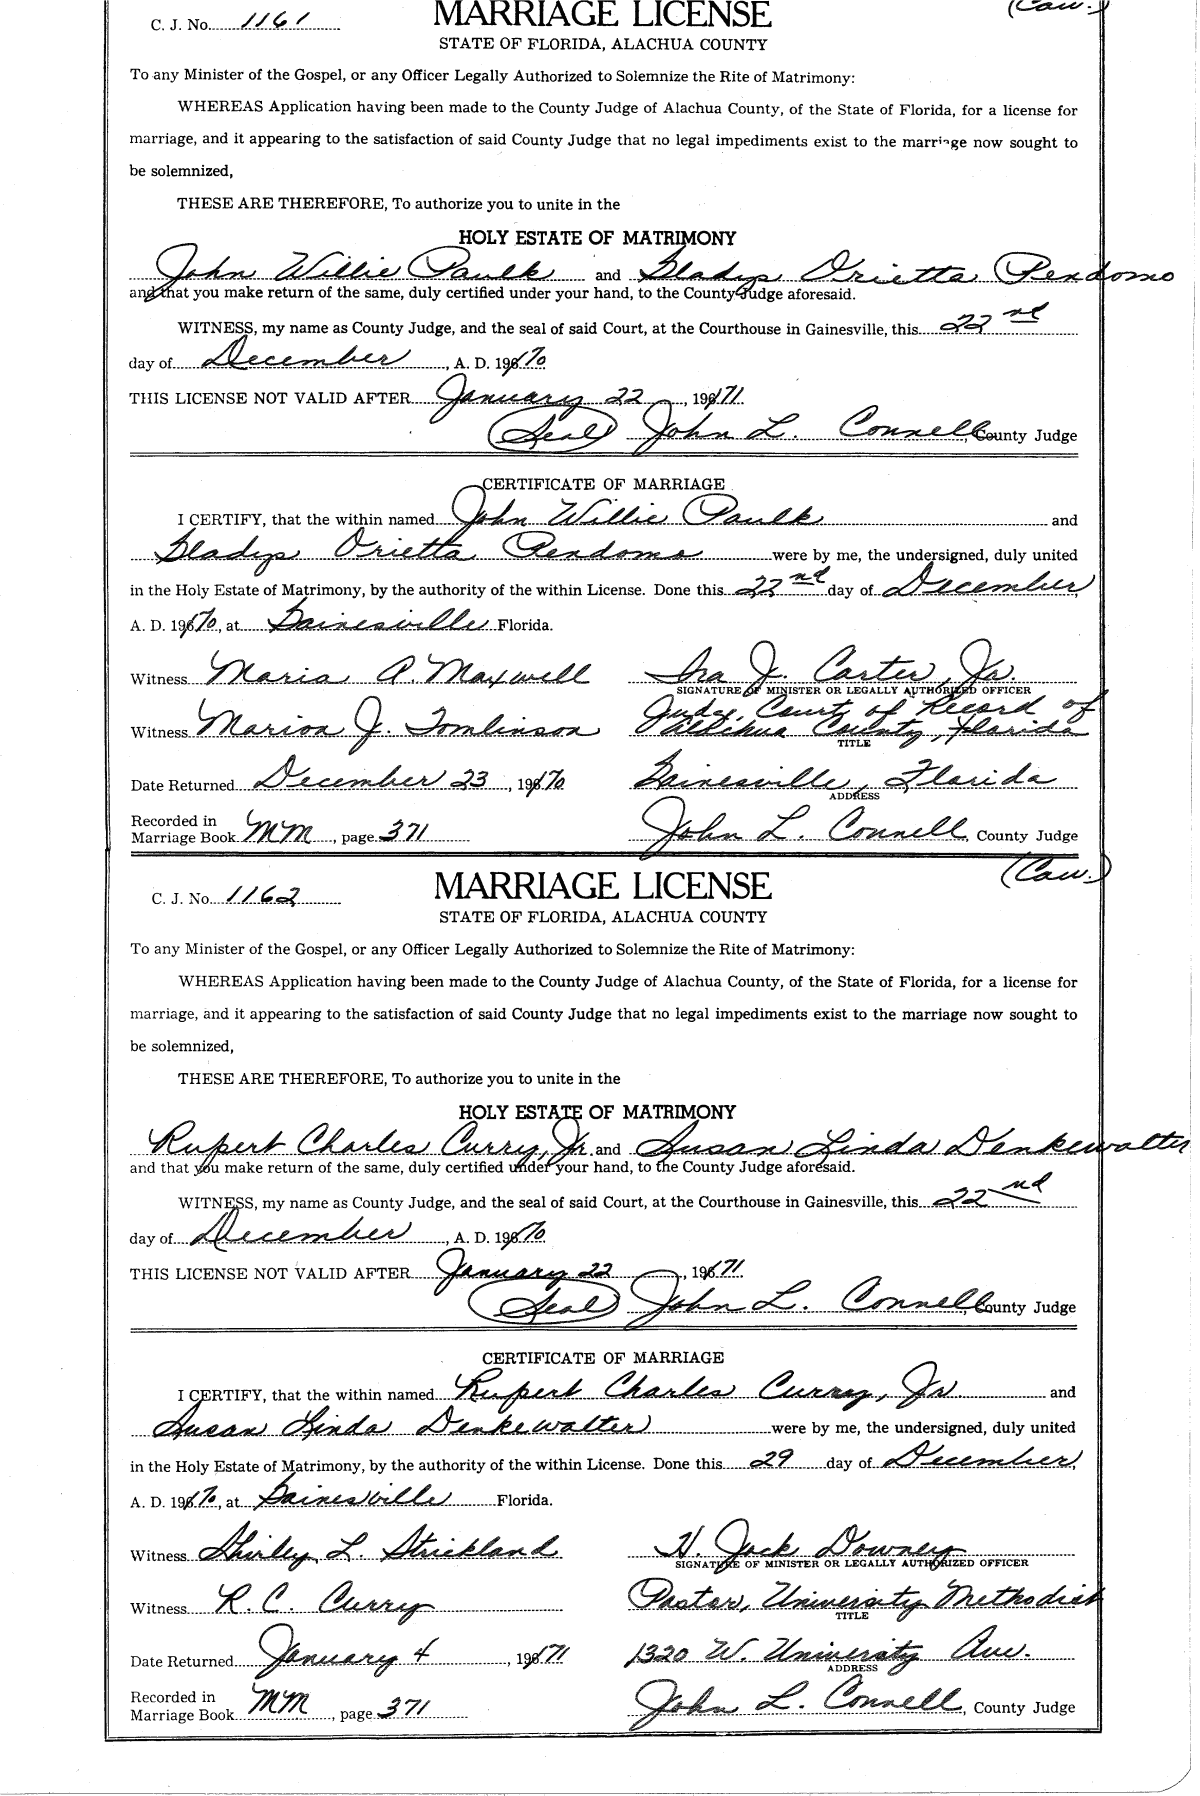 (Cau.)
C. J. No. 1161 MARRIAGE LICENSE
STATE OF FLORIDA, ALACHUA COUNTY
To any Minister of the Gospel, or any Officer Legally Authorized to Solemnize the Rite of Matrimony:
WHEREAS Application having been made to the County Judge of Alachua County, of the State of Florida, for a license for
marriage, and it appearing to the satisfaction of said County Judge that no legal impediments exist to the marriage now sought to
be solemnized,
THESE ARE THEREFORE, To authorize you to unite in the
HOLY ESTATE OF MATRIMONY
John Willie Paulk and Gladys Orietta Rendomo
and that you make return of the same, duly certified under your hand, to the County Judge aforesaid.
WITNESS, my name as County Judge, and the seal of said Court, at the Courthouse in Gainesville, this 22nd
day of December, A. D. 1970
THIS LICENSE NOT VALID AFTER January 22, 1971.
(Seal) John L. Connell, County Judge
CERTIFICATE OF MARRIAGE
I CERTIFY, that the within named John Willie Paulk and
Gladys Orietta Rendomo were by me, the undersigned, duly united
in the Holy Estate of Matrimony, by the authority of the within License. Done this 22nd day of December,
A. D. 1970, at Gainesville Florida.
Witness Maria A. Maxwell Ira J. Carter, Jr.
SIGNATURE OF MINISTER OR LEGALLY AUTHORIZED OFFICER
Judge, Court of Record of
Witness Marion J. Tomlinson Alachua County, Florida
TITLE
Date Returned December 23, 1970 Gainesville, Florida
ADDRESS
Recorded in
Marriage Book MM, page 371 John L. Connell, County Judge
(Cau.)
C. J. No. 1162 MARRIAGE LICENSE
STATE OF FLORIDA, ALACHUA COUNTY
To any Minister of the Gospel, or any Officer Legally Authorized to Solemnize the Rite of Matrimony:
WHEREAS Application having been made to the County Judge of Alachua County, of the State of Florida, for a license for
marriage, and it appearing to the satisfaction of said County Judge that no legal impediments exist to the marriage now sought to
be solemnized,
THESE ARE THEREFORE, To authorize you to unite in the
HOLY ESTATE OF MATRIMONY
Rupert Charles Curry, Jr. and Susan Linda Denkewalter
and that you make return of the same, duly certified under your hand, to the County Judge aforesaid.
WITNESS, my name as County Judge, and the seal of said Court, at the Courthouse in Gainesville, this 22nd
day of December, A. D. 1970
THIS LICENSE NOT VALID AFTER January 22, 1971.
(Seal) John L. Connell, County Judge
CERTIFICATE OF MARRIAGE
I CERTIFY, that the within named Rupert Charles Curry, Jr and
Susan Linda Denkewalter were by me, the undersigned, duly united
in the Holy Estate of Matrimony, by the authority of the within License. Done this 29 day of December,
A. D. 1970, at Gainesville Florida.
Witness Shirley L. Strickland H. Jack Downey
SIGNATURE OF MINISTER OR LEGALLY AUTHORIZED OFFICER
Witness R. C. Curry Pastor, University Methodist
TITLE
Date Returned January 4, 1971 1320 W. University Ave.
ADDRESS
Recorded in
Marriage Book MM, page 371 John L. Connell, County Judge